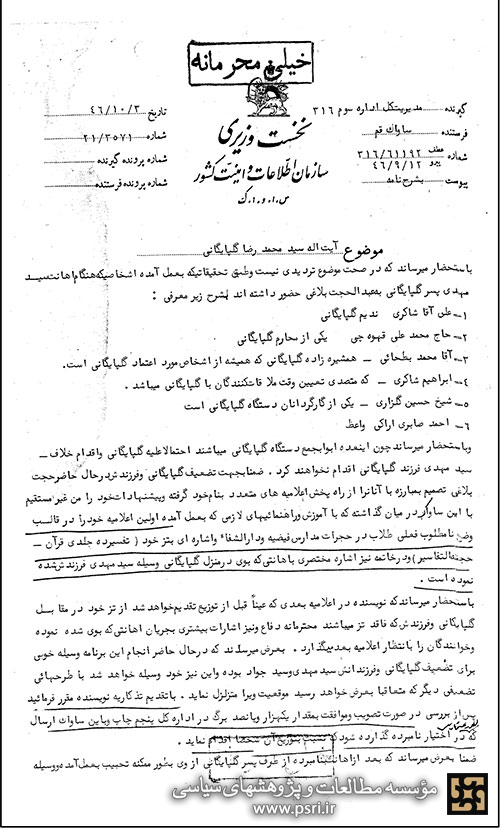 خیلی محرمانه
نخست وزیری
سازمان اطلاعات و امنیت کشور
س.ا.و.ا.ک
گیرنده مدیریت کل اداره سوم ۳۱۶
فرستنده ساواک قم
شماره عطف ۳۱۶/۶۱۱۹۲
پیرو ۴۶/۹/۱۲
پیوست بشرح نامه
تاریخ ۴۶/۱۰/۳
شماره ۲۱/۳۵۷۱
شماره پرونده گیرنده
شماره پرونده فرستنده
موضوع آیت اله سید محمد رضا گلپایگانی
باستحضار میرساند که در صحت موضوع تردیدی نیست وطبق تحقیقاتیکه بعمل آمده اشخاصیکه هنگام اهانت سید
مهدی پسر گلپایگانی بعبدالحجت بلاغی حضور داشته اند بشرح زیر معرفی :
۱- علی آقا شاکری ندیم گلپایگانی
۲- حاج محمد علی قهوه چی یکی از محارم گلپایگانی
۳- آقا محمد بطحائی – همشیره زاده گلپایگانی که همیشه از اشخاص مورد اعتماد گلپایگانی است.
٤- ابراهیم شاکری – که متصدی تعیین وقت ملاقات کنندگان با گلپایگانی میباشد .
۵- شیخ حسین گلزاری – یکی از کارگردانان دستگاه گلپایگانی است
۶- احمد صابری اراکی واعظ
وباستحضار میرساند چون اینعده ابوابجمع دستگاه گلپایگانی میباشند احتمالا علیه گلپایگانی واقدام خلاف –
سید مهدی فرزند گلپایگانی اقدام نخواهند کرد . ضمنا بجهت تضعیف گلپایگانی وفرزند ش در حال حاضر حجت
بلاغی تصمیم بمبارزه با آنانرا از راه پخش اعلامیه های متعدد بنام خود گرفته وپیشنهادات خود را من غیر مستقیم
با این ساواک در میان گذاشته که با آموزش وراهنمائیهای لازمی که بعمل آمده اولین اعلامیه خود را در قالب
وضع نامطلوب فعلی طلاب در حجرات مدارس فیضیه ودارالشفا واشاره ای بتز خود ( تفسیر ده جلدی قرآن –
حجته التفاسیر ) ودر خاتمه نیز اشاره مختصری باهانتی که بوی در منزل گلپایگانی وسیله سید مهدی فرزندش شده
نموده است .
باستحضار میرساند که نویسنده در اعلامیه بعدی که عیناً قبل از توزیع تقدیم خواهد شد از تز خود در مقابل
گلپایگانی وفرزندش که فاقد تز میباشند محترمانه دفاع ونیز اشارات بیشتری بجریان اهانتی که بوی شده نموده
وخوانندگان را بانتظار اعلامیه بعد میگذارد . بعرض میرساند که در حال حاضر انجام این برنامه وسیله خوبی
برای تضعیف گلپایگانی وفرزندانش سید مهدی وسید جواد بوده واین نیز خود وسیله خواهد شد با طرحهائی
تضعیفی دیگر که متعاقبا بعرض خواهد رسید موقعیت ویرا متزلزل نماید . باتقدیم تذکاریه نویسنده مقرر فرمائید
پس از بررسی در صورت تصویب وموافقت بمقدار یکهزار وپانصد برگ در اداره کل پنجم چاپ وباین ساواک ارسال
که در اختیار نامبرده گذارده شود که نسبت بتوزیع آن شخصا اقدام نماید .
ضمنا بعرض میرساند که بعد از اهانت بنامبرده از طرف پسر گلپایگانی از وی بطور ممکنه تحبیب بعمل آمده ووسیله
مؤسسه مطالعات و پژوهشهای سیاسی
www.psri.ir